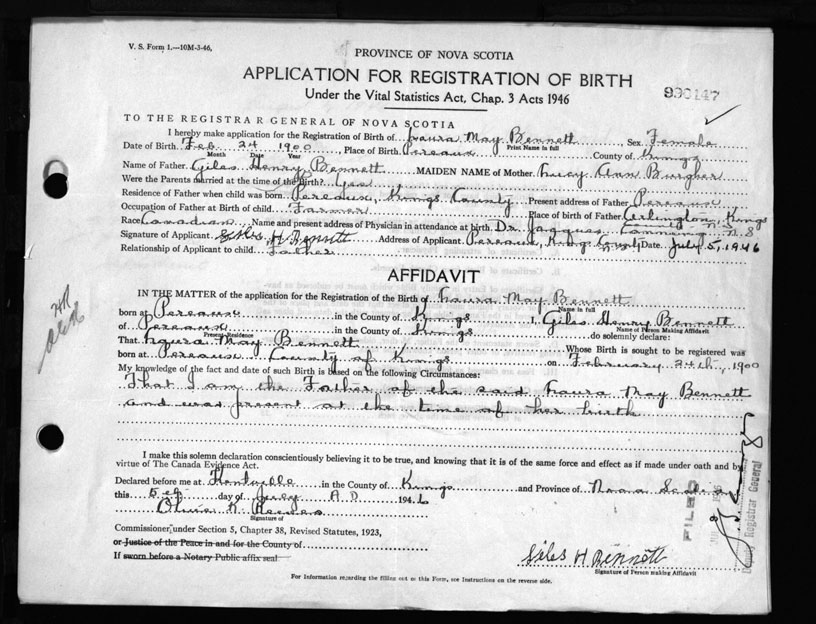 V. S. Form 1.—10M-3-46,
PROVINCE OF NOVA SCOTIA
APPLICATION FOR REGISTRATION OF BIRTH
Under the Vital Statistics Act, Chap. 3 Acts 1946
TO THE REGISTRAR GENERAL OF NOVA SCOTIA
I hereby make application for the Registration of Birth of Laura May Bennett Sex Female
Print Name in full
Date of Birth Feb 24 1900 Place of Birth Pereaux County of Kings
Month Date Year
Name of Father Giles Henry Bennett MAIDEN NAME of Mother Lucy Ann Burgher
Were the Parents married at the time of the birth? Yes
Residence of Father when child was born Pereaux, Kings County Present address of Father Pereaux
Occupation of Father at Birth of child Farmer Place of birth of Father Arlington, Kings
County N.S
Race Canadian Name and present address of Physician in attendance at birth Dr. Jacques Canning N.S
Signature of Applicant Giles H Bennett Address of Applicant Pereaux, Kings County Date July 5, 1946
Relationship of Applicant to child Father
AFFIDAVIT
IN THE MATTER of the application for the Registration of the Birth of Laura May Bennett
Name in full
born at Pereaux in the County of Kings I, Giles Henry Bennett
Name of Person Making Affidavit
of Pereaux in the County of Kings do solemnly declare:
Present Residence
That Laura May Bennett Whose Birth is sought to be registered was
born at Pereaux County of Kings on February 24th, 1900
My knowledge of the fact and date of such Birth is based on the following Circumstances:
That I am the Father of the said Laura May Bennett
and was present at the time of her birth
I make this solemn declaration conscientiously believing it to be true, and knowing that it is of the same force and effect as if made under oath and by
virtue of The Canada Evidence Act.
Declared before me at Kentville in the County of Kings and Province of Nova Scotia
this 5th day of July A.D. 1946
Signature of
Commissioner under Section 5, Chapter 38, Revised Statutes, 1923,
or Justice of the Peace in and for the County of
If sworn before a Notary Public affix seal
Giles H Bennett
Signature of Person making Affidavit
For Information regarding the filling out of this Form, see Instructions on the reverse side.
FILED
Deputy Registrar General